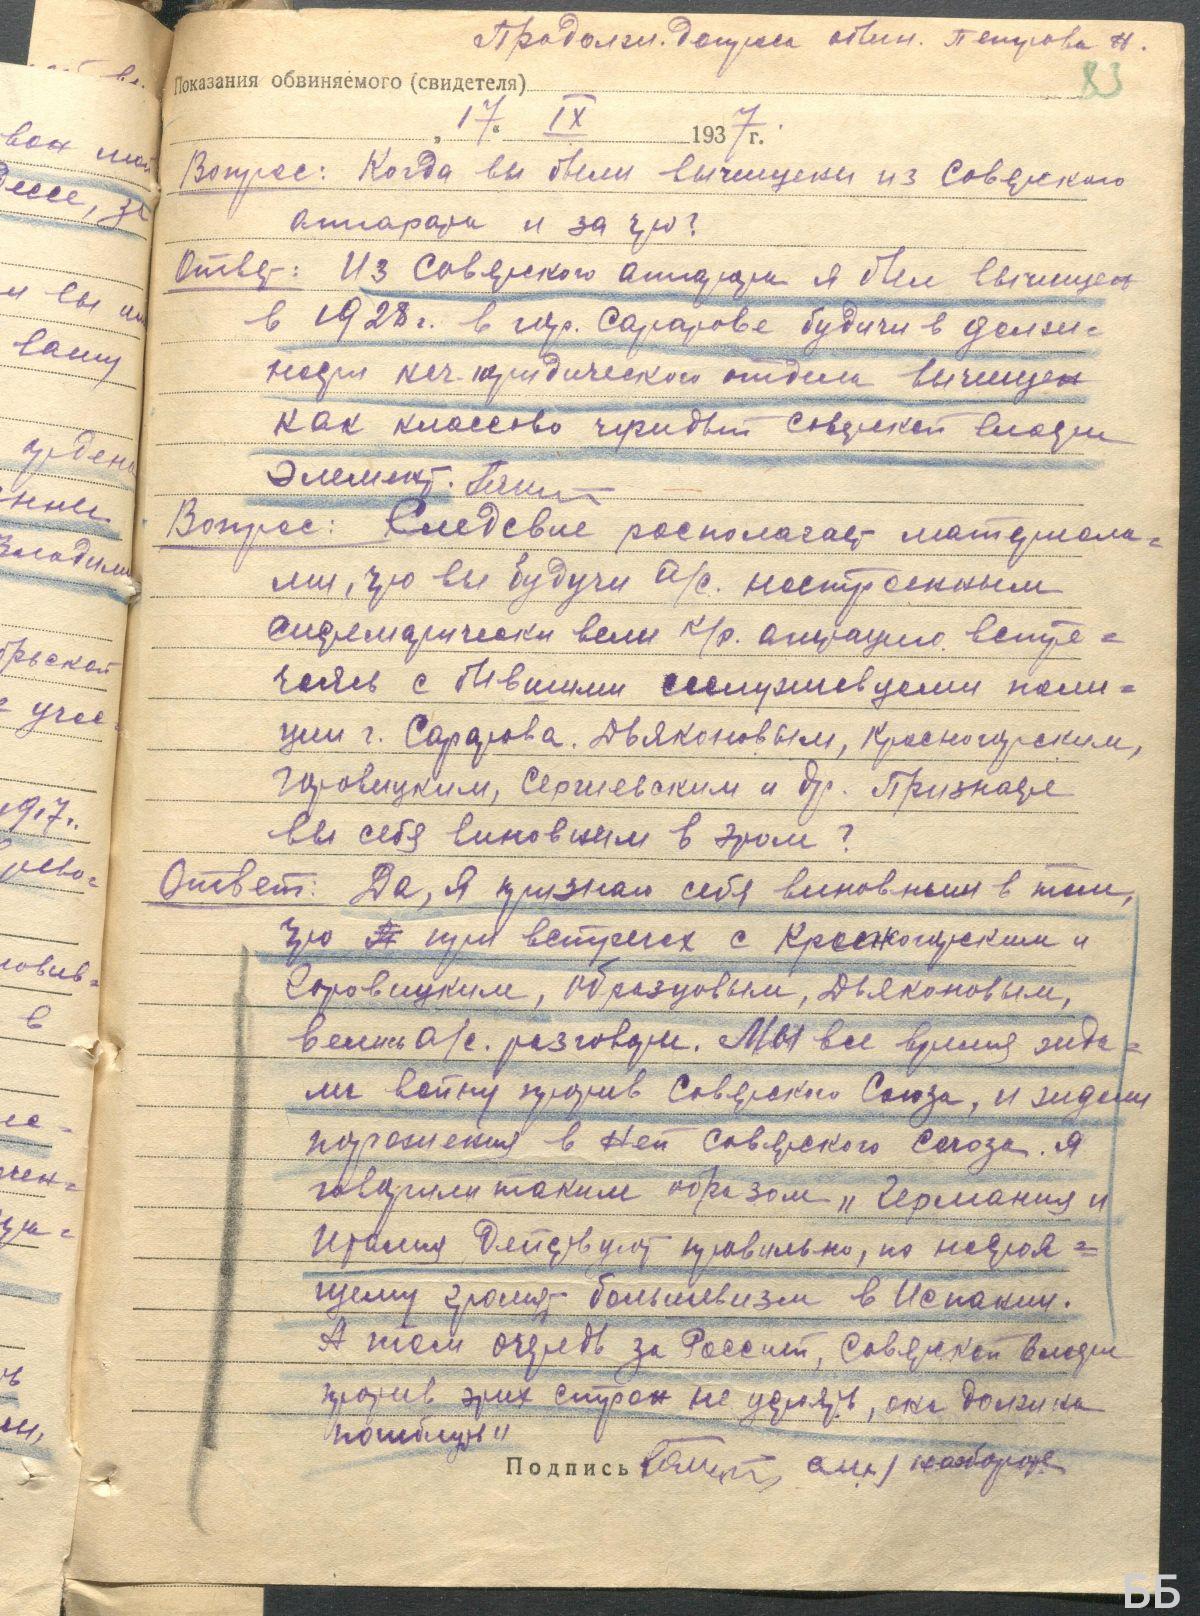 Продолж. допроса обвин. Петрова Н.
83
Показания обвиняемого (свидетеля)
„17“ IX 1937г.
Вопрос: Когда вы были вычищены из Советского
аппарата и за что?
Ответ: Из Советского аппарата я был вычищен
в 1928г. в гор. Саратове будучи в долж-
ности нач. юридического отдела вычищен
как классово чуждый Советской власти
элемент.
Вопрос: Следсвие располагает материала-
ми, что вы будучи а/с. настроенным
систематически вели к/р. агитацию встре-
чаясь с бывшими сослуживцами поли-
ции г. Саратова. Дьяконовым, Красногорским,
Горовицким, Сергиевским и др. Признаете
вы себя виновным в этом?
Ответ: Да, я признаю себя виновным в том,
что при встречах с Красногорским и
Горовицким, Образцовым, Дьяконовым,
велись а/с. разговоры. Мы все время жда-
ли войну против Советского Союза, и ждали
поражения в ней Советского Союза. Я
говорил таким образом „Германия и
Италия действуют правильно, по настоя-
щему громят большевизм в Испании.
А там очередь за Россией, Советской власти
против этих стран не устоять, она должна
погибнуть"
Подпись см. на обороте
ББ